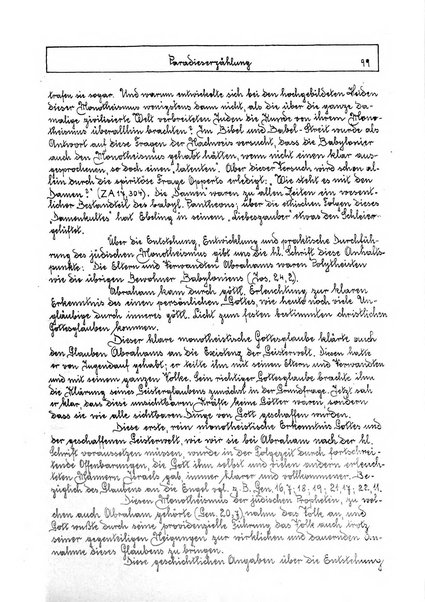 Paradieserzählung 99
trafen sie sogar. Und warum entwickelte sich bei den hochgebildeten Heiden
dieser Monotheismus wenigstens dann nicht, als die über die ganze da-
malige zivilisierte Welt verbreiteten Juden die Kunde von ihrem Mono-
theismus überallhin brachten? Im Bibel und Babel-Streit wurde als
Antwort auf diese Fragen der Nachweis versucht, dass die Babylonier
auch den Monotheismus gehabt hätten, wenn nicht einen klar aus-
gesprochenen, so doch einen „latenten". Aber dieser Versuch wird schon al-
lein durch die spiritöse Frage Opperts erledigt: „Wie steht es mit den
Damen?" (ZA 17, 304). Die „Damen" waren zu allen Zeiten ein wesent-
licher Bestandteil des babyl. Pantheons; über die ethischen Folgen dieses
„Damenkultes" hat Ebeling in seinem „Liebeszauber" etwas den Schleier
gelüftet.
Über die Entstehung, Entwicklung und praktische Durchfüh-
rung des jüdischen Monotheismus gibt uns die hl. Schrift diese Anhalts-
punkte: Die Eltern und Verwandten Abrahams waren Polytheisten
wie die übrigen Bewohner Babyloniens (Jos. 24, 2).
Abraham kam durch göttl. Erleuchtung zur klaren
Erkenntnis des einen persönlichen Gottes, wie heute noch viele Un-
gläubige durch inneres göttl. Licht zum festen bestimmten christlichen
Gottesglauben kommen.
Dieser klare monotheistische Gottesglaube klärte auch
den Glauben Abrahams an die Existenz der Geisterwelt. Diesen hatte
er von Jugend auf gehabt; er teilte ihn mit seinen Eltern und Verwandten
und mit seinem ganzen Volke. Sein richtiger Gottesglaube brachte ihm
die Klärung seines Geisterglaubens zunächst in der Grundfrage: Jetzt sah
er klar, dass diese unsichtbaren Kräfte keine Götter waren sondern
dass sie wie alle sichtbaren Dinge von Gott geschaffen wurden.
Diese erste, rein monotheistische Erkenntnis Gottes und
der geschaffenen Geisterwelt, wie wir sie bei Abraham nach der hl.
Schrift voraussetzen müssen, wurde in der Folgezeit durch fortschrei-
tende Offenbarungen, die Gott ihm selbst und vielen andern erleuch-
teten Männern Israels gab, immer klarer und vollkommener. Be-
züglich des Glaubens an die Engel vgl. z. B. Gen. 16, 7; 18; 19; 21, 17; 22, 11.
Diesen Monotheismus der jüdischen Propheten, zu wel-
chen auch Abraham gehörte (Gen. 20, 7) nahm das Volk an, und
Gott wußte durch seine providenzielle Führung das Volk auch trotz
seiner gegenteiligen Neigungen zur wirklichen und dauernden An-
nahme dieses Glaubens zu bringen.
Diese geschichtlichen Angaben über die Entstehung